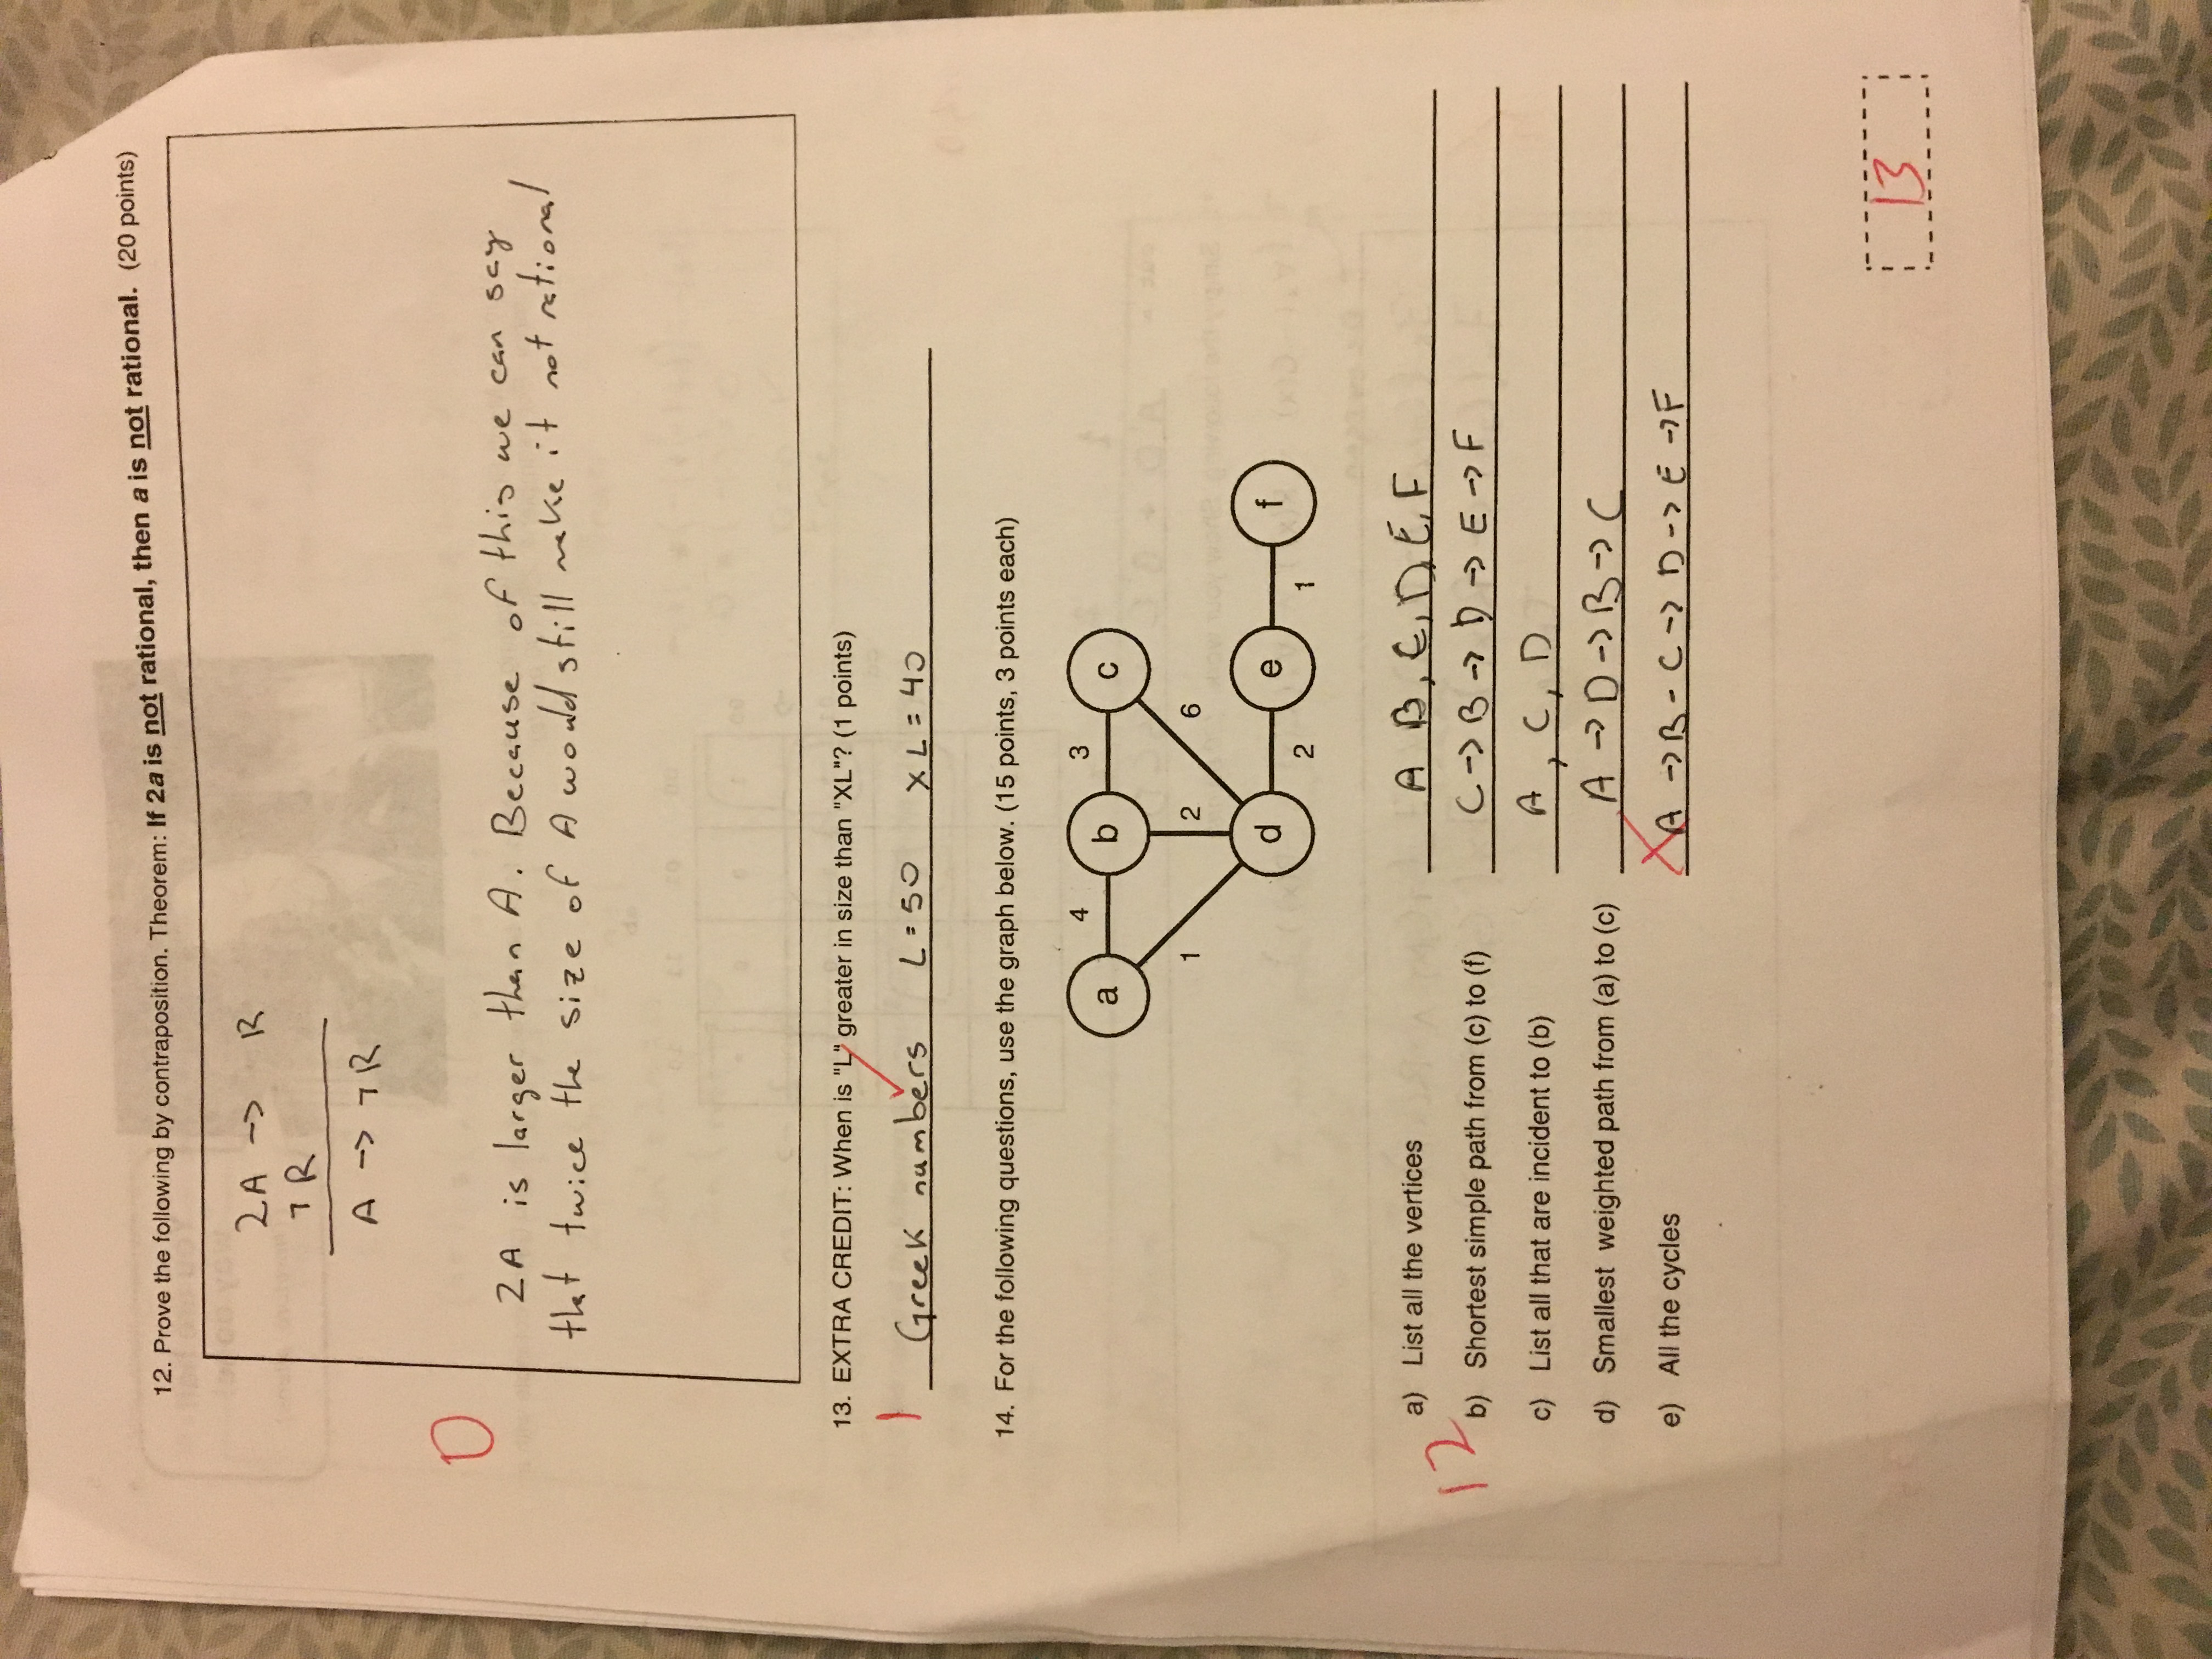 12. Prove the following by contraposition. Theorem: If 2a is not rational, then a is not rational. (20 points)
2A -> R
¬R
A -> ¬R
0
2A is larger than A. Because of this we can say
that twice the size of A would still make it not rational
13. EXTRA CREDIT: When is "L" greater in size than "XL"? (1 points)
1 Greek numbers L=50 XL=40
14. For the following questions, use the graph below. (15 points, 3 points each)
4 3
a b c
1 2 6
d e f
2 1
a) List all the vertices A B, C, D, E, F
12
b) Shortest simple path from (c) to (f) C->B->D->E->F
c) List all that are incident to (b) A, C, D
d) Smallest weighted path from (a) to (c) A->D->B->C
e) All the cycles A->B-C->D->E->F
13